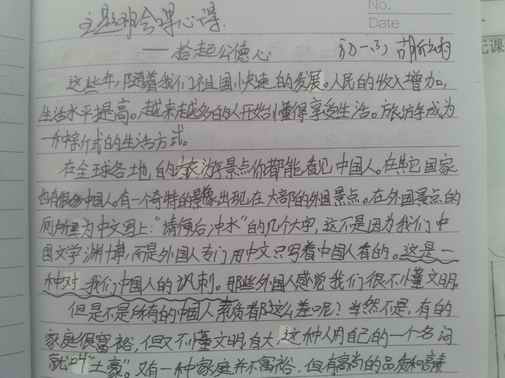 主题班会课心得
No.
Date
——拾起公德心 初一(3) 胡
这些年，随着我们祖国快速的发展。人民的收入增加。
生活水平提高。越来越多的人开始懂得享受生活。旅游车成为
一种新式的生活方式。
在全球各地，的旅游景点你都能看见中国人。在其它国家
也有很多中国人。有一个奇特的景象出现在大部的外国景点。在外国景点的
厕所里为中文写上："请便后冲水"的几个大字，这不是因为我们中
国文学渊博，而是外国人专门用中文只写着中国人看的。这是一
种对我们中国人的讽刺。那些外国人感觉我们很不懂文明。
但是不是所有的中国人素质都这么差呢？当然不是，有的
家庭很富裕，但又不懂文明，有人这种人用自己的一个名词
就叫"土豪"。又有一种家庭并不富裕，但有高尚的品质和素
元课